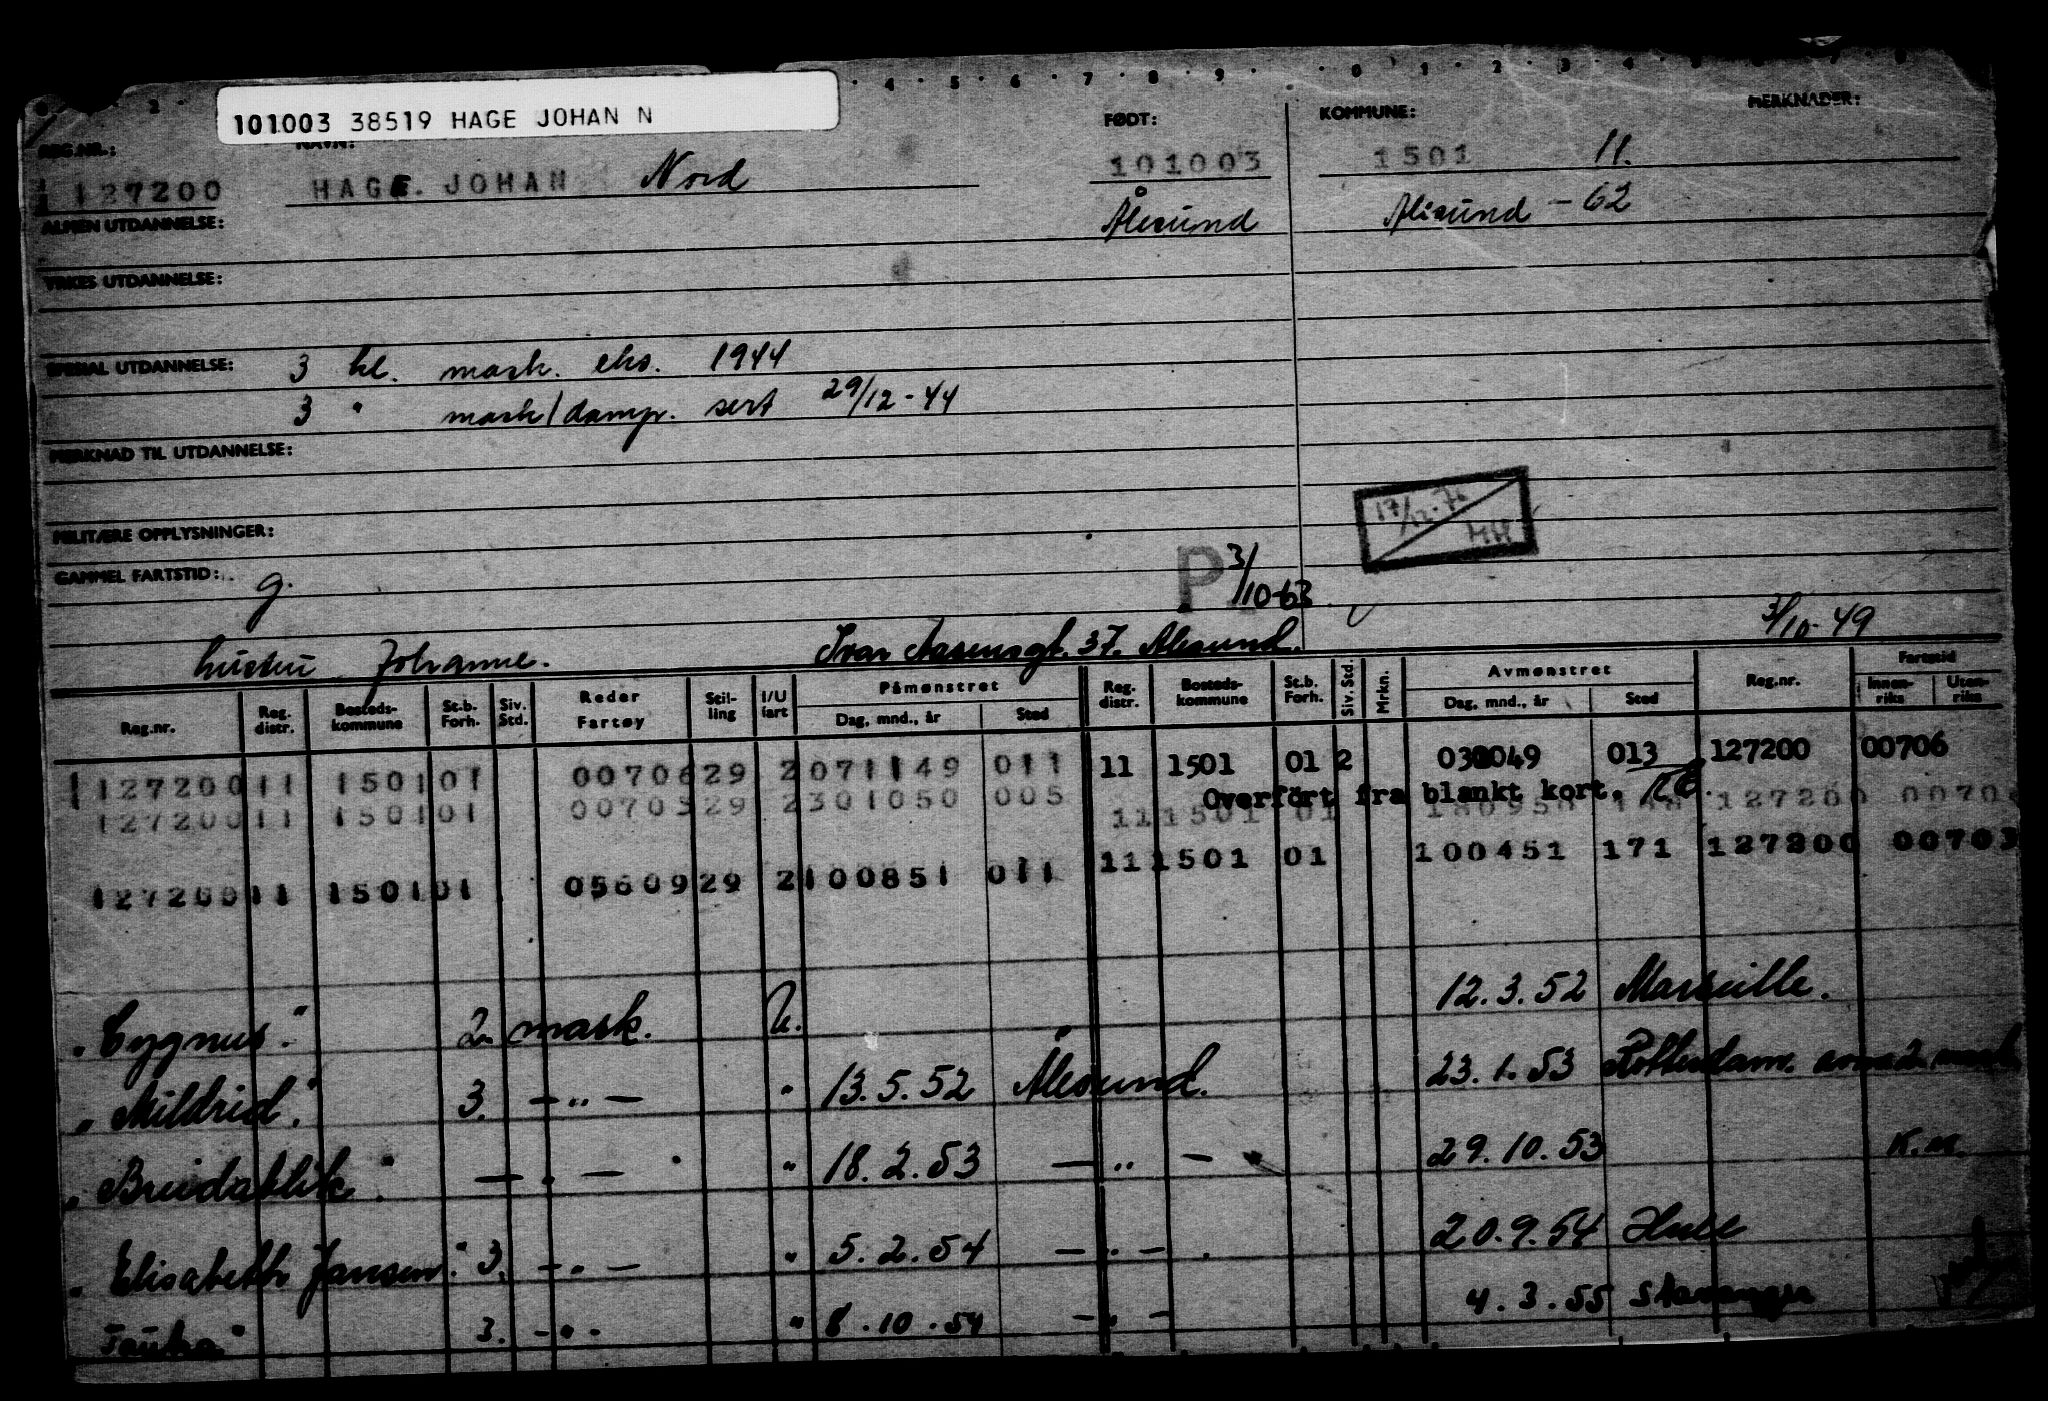 101003 38519 HAGE JOHAN N
MERKNADER:
REG.NR.: NAVN: FØDT: KOMMUNE:
127200 HAGE. JOHAN Nord 101003 1501 11.
ALMEN UTDANNELSE: Ålesund Ålesund - 62
YRKES UTDANNELSE:
SPESIAL UTDANNELSE: 3 kl. mask. eks. 1944
3 " mask/damp. sert 29/12-44
MERKNAD TIL UTDANNELSE:
17/12-76
MILITÆRE OPPLYSNINGER:
GAMMEL FARTSTID: g. P 3/10-63
hustru Johanne. Ivar Aasensgt. 37. Ålesund. 3/10-49
Reg.nr. Reg. distr. Bosteds-kommune St.b. Forh. Siv. Std. Reder Fartøy Stil-ling I/U fart Påmønstret Dag, mnd., år Sted Reg. distr. Bosteds-kommune St.b. Forh. Siv. Std. Mrkn. Avmønstret Dag, mnd., år Sted Reg.nr. Fartstid Innen-riks Uten-riks
127200 11 1501 01 00706 29 2 071149 011 11 1501 01 2 49 013 127200 00706
Overfört fra blankt kort.
127200 11 1501 01 00703 29 2 301050 005 11 1501 01 127200
11 1501 01 100451 171 127200 00703
127200 11 1501 01 05609 29 2 100851 011
"Cygnus" 2. mask. U. 12.3.52 Marseille.
"Mildrid" 3. - " - " 13.5.52 Ålesund. 23.1.53 Rotterdam.
"Breidablik" - " - " 18.2.53 - " - 29.10.53 K.M.
"Elisabeth Jansen" 3. - " - " 5.2.54 - " - 20.9.54
3. - " - " 8.10.54 - " - 4.3.55 Stavanger